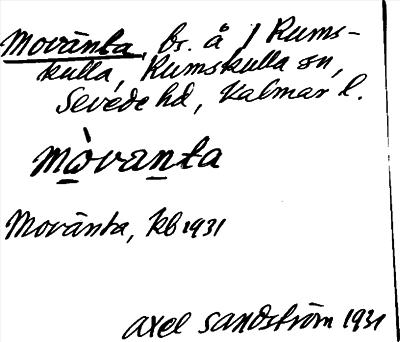 Movänta, bs. å J Rums-
kulla, Rumskulla sn,
Sevede hd, Kalmar l.
mòvanta
Movänta, kb 1931
axel Sandström 1931